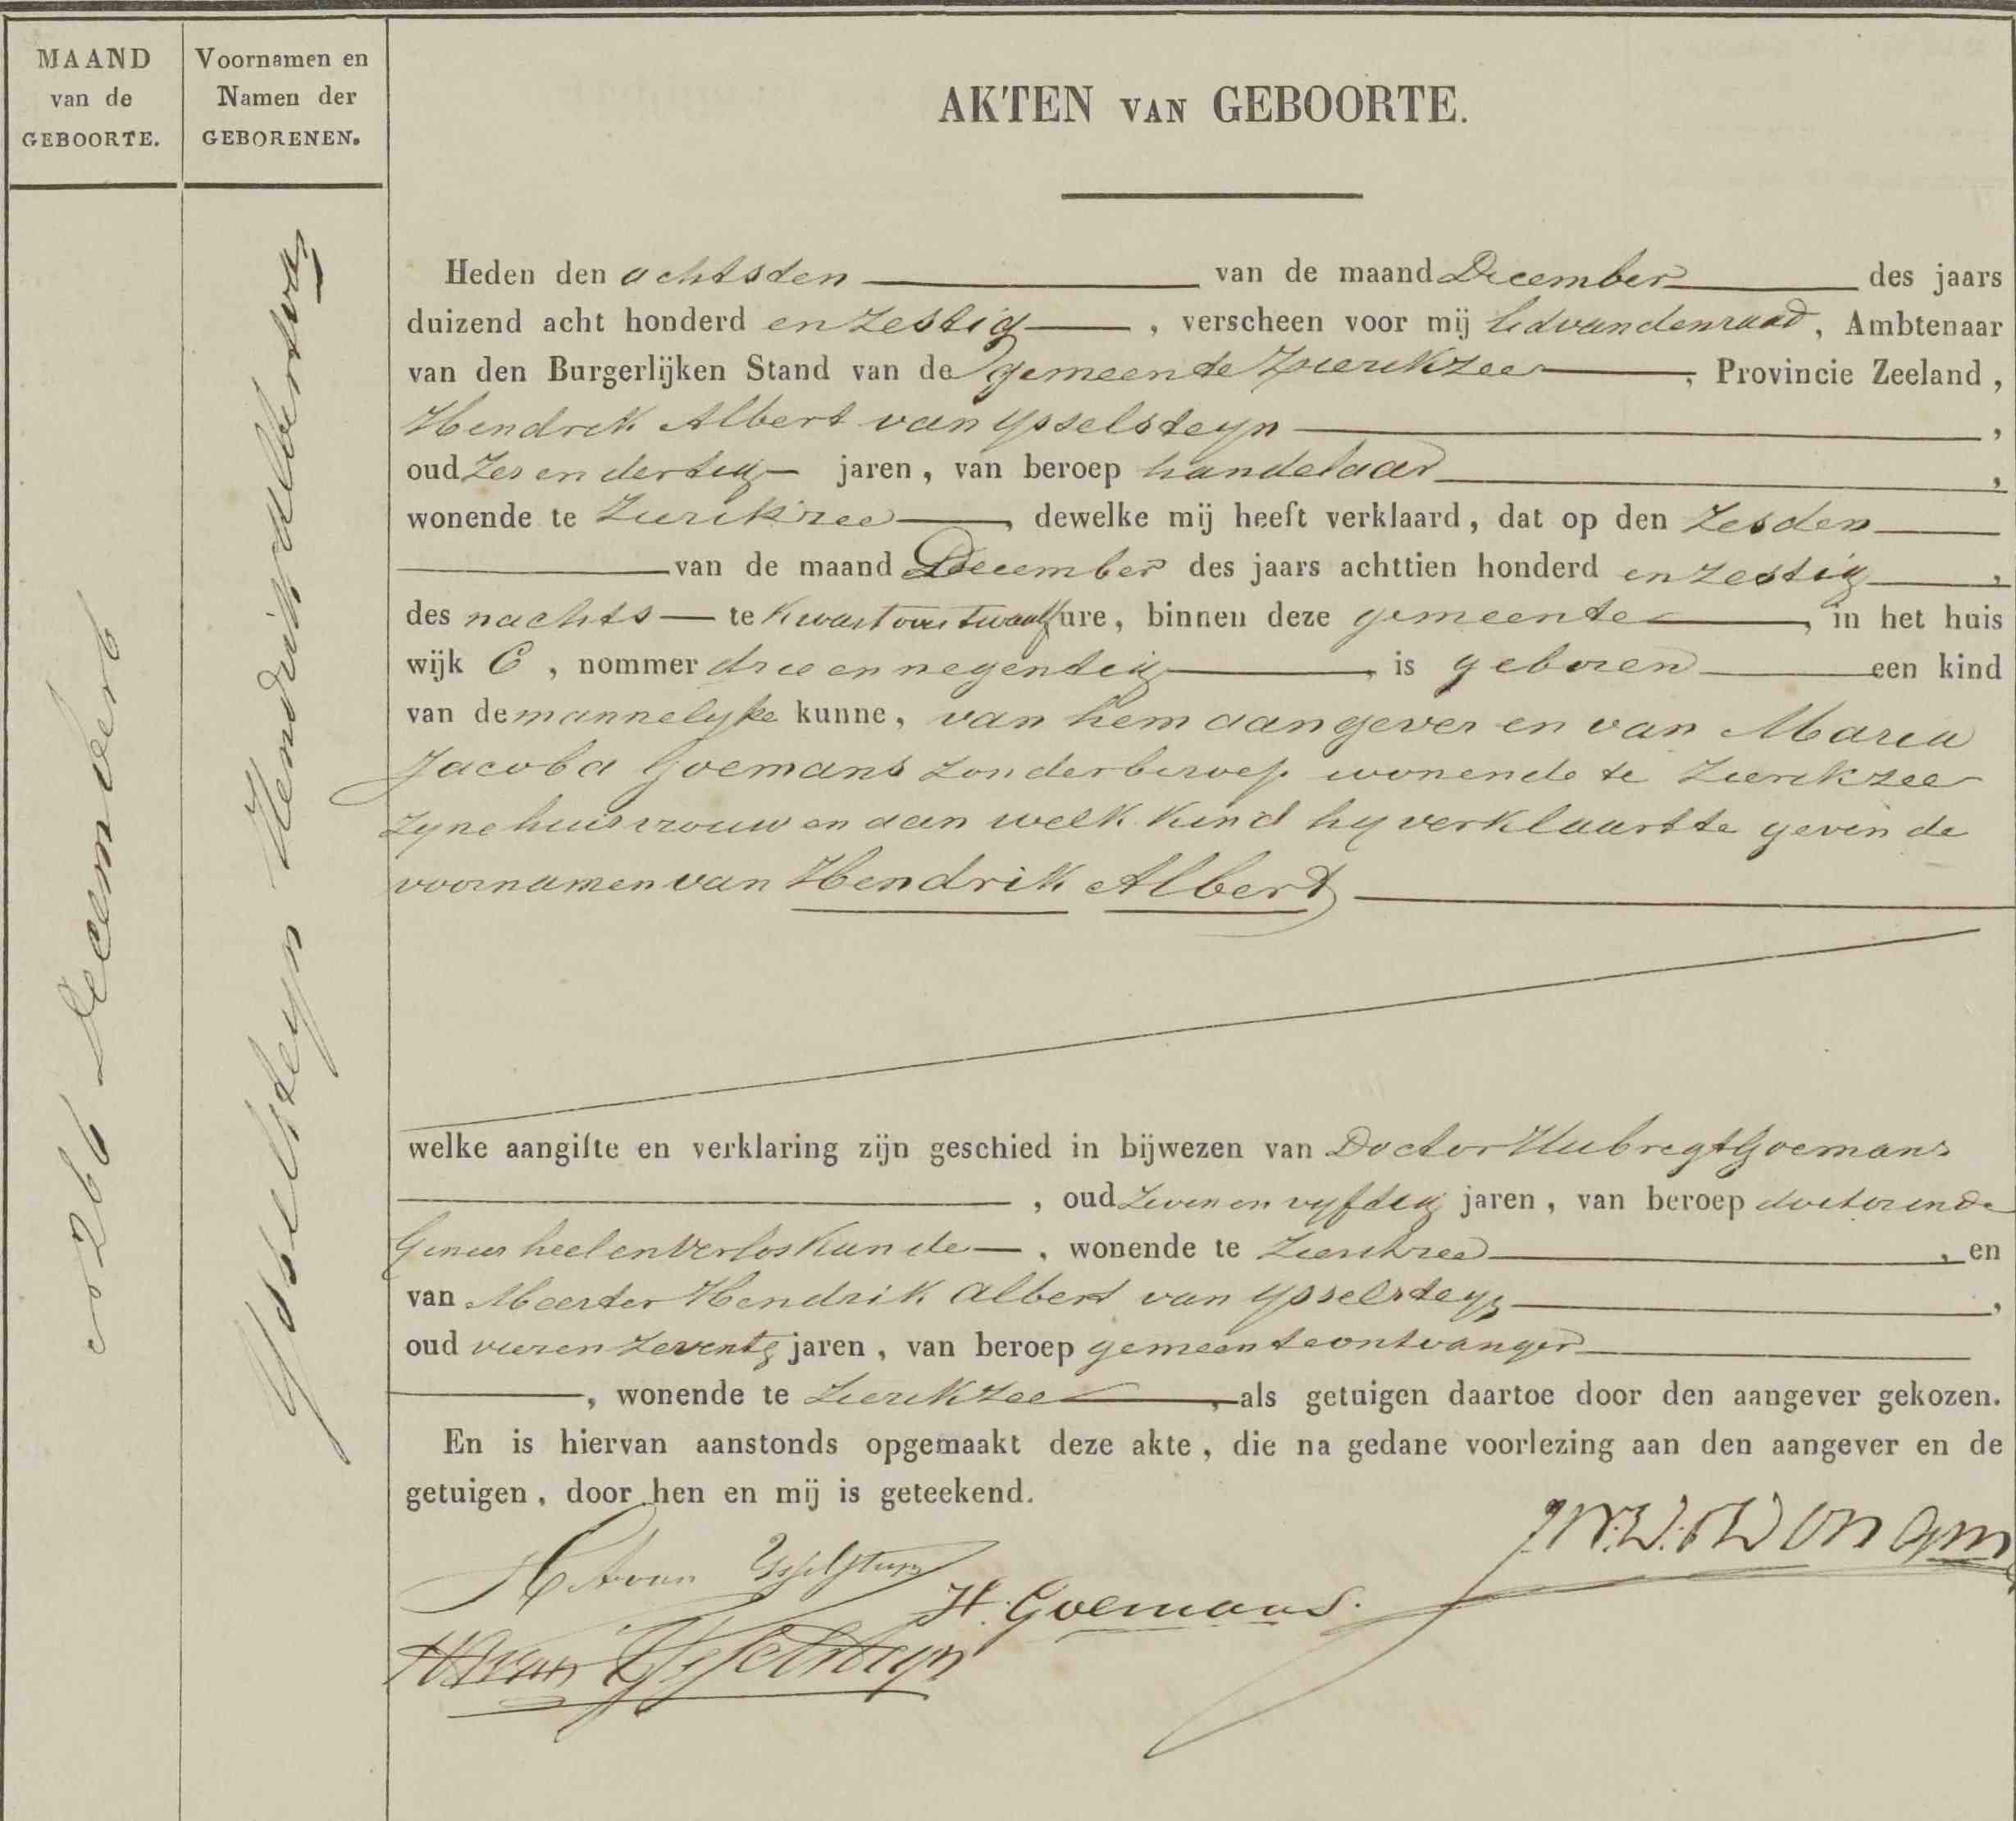 MAAND
van de
GEBOORTE.
Voornamen en
Namen der
GEBORENEN.
6 December
Ysselsteyn Hendrik Albert van
AKTEN VAN GEBOORTE.
Heden den achtsden van de maand December des jaars
duizend acht honderd en zestig, verscheen voor mij lid van den raad, Ambtenaar
van den Burgerlijken Stand van de gemeente Zierikzee, Provincie Zeeland,
Hendrik Albert van Ysselsteyn,
oud zes en dertig jaren, van beroep handelaar,
wonende te Zierikzee, dewelke mij heeft verklaard, dat op den zesden
van de maand December des jaars achttien honderd en zestig,
des nachts te kwart over twaalf ure, binnen deze gemeente, in het huis
wijk C, nommer drie en negentig, is geboren een kind
van de mannelyke kunne, van hem aangever en van Maria
Jacoba Goemans zonder beroep wonende te Zierikzee
zyne huisvrouw en aan welk kind hy verklaart te geven de
voornamen van Hendrik Albert
welke aangifte en verklaring zijn geschied in bijwezen van Doctor Hubregt Goemans
, oud zeven en vyftig jaren, van beroep doctor in de
Genees heel en Verloskunde, wonende te Zierikzee, en
van Meester Hendrik Albert van Ysselsteyn,
oud vier en zeventig jaren, van beroep gemeente ontvanger
, wonende te Zierikzee, als getuigen daartoe door den aangever gekozen.
En is hiervan aanstonds opgemaakt deze akte, die na gedane voorlezing aan den aangever en de
getuigen, door hen en mij is geteekend.
H A van Ysselsteyn
H. Goemans.
HA van Ysselsteyn